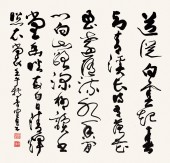 道由白雲盡春
與青溪長時有落花
至遠隨流水香
閒門山路深柳讀書
堂幽映每白日清輝
照衣裳